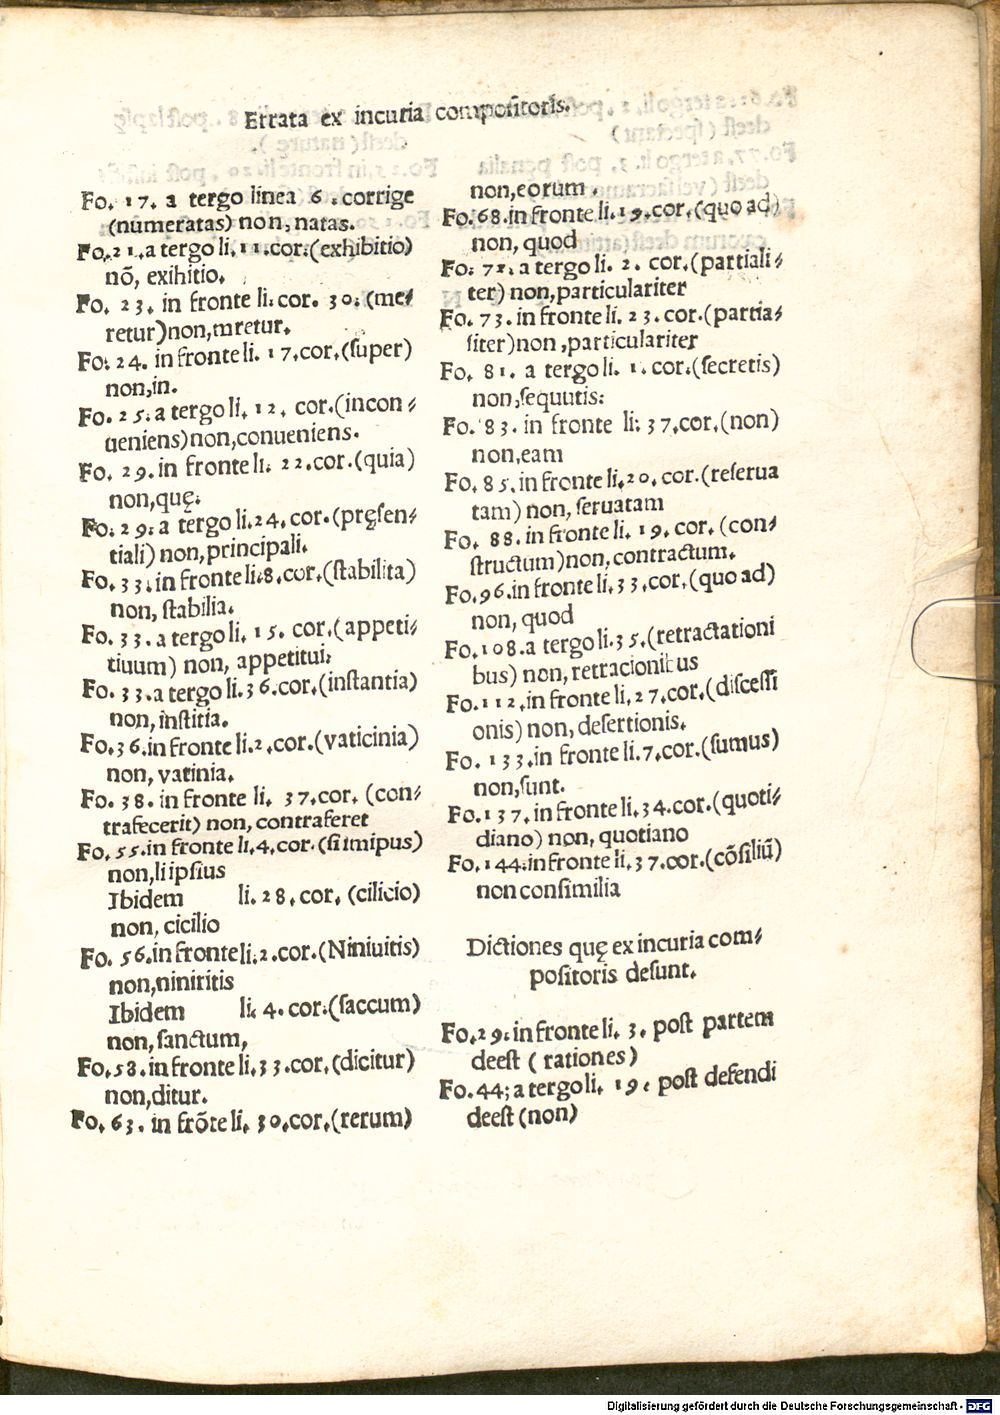 Errata ex incuria compositoris.
Fo. 17. a tergo linea 6. corrige
(numeratas) non, natas.
Fo. 21. a tergo li. 11. cor. (exhibitio)
nō, exihitio.
Fo. 23. in fronte li: cor. 30. (me⸗
retur) non, mretur.
Fo: 24. in fronte li. 17. cor. (ſuper)
non, in.
Fo. 25. a tergo li. 12. cor. (incon⸗
ueniens) non, conueniens.
Fo. 29. in fronte li. 22. cor. (quia)
non, quę.
Fo: 29: a tergo li. 24. cor. (pręſen⸗
tiali) non, principali.
Fo. 33. in fronte li. 8. cor. (ſtabilita)
non, ſtabilia.
Fo. 33. a tergo li. 15. cor. (appeti⸗
tiuum) non, appetitui:
Fo. 33. a tergo li. 36. cor. (inſtantia)
non, inſtitia.
Fo. 36. in fronte li. 2. cor. (vaticinia)
non, vatinia.
Fo. 38. in fronte li. 37. cor. (con⸗
trafecerit) non, contraferet
Fo. 55. in fronte li. 4. cor. (ſiimipus)
non, li ipſius
Ibidem li. 28. cor. (cilicio)
non, cicilio
Fo. 56. in fronte li. 2. cor. (Niniuitis)
non, niniritis
Ibidem li. 4. cor. (ſaccum)
non, ſanctum,
Fo. 58. in fronte li. 33. cor. (dicitur)
non, ditur.
Fo. 63. in frōte li. 30. cor. (rerum)
non, eorum.
Fo. 68. in fronte li. 19. cor. (quo ad)
non, quod
Fo: 71. a tergo li. 2. cor. (partiali⸗
ter) non, particulariter
Fo. 73. in fronte li. 23. cor. (partia⸗
liter) non, particulariter
Fo. 81. a tergo li. 1. cor. (ſecretis)
non, ſequutis:
Fo. 83. in fronte li: 37. cor. (non)
non, eam
Fo. 85. in fronte li. 20. cor. (reſerua
tam) non, ſeruatam
Fo. 88. in fronte li. 19. cor. (con⸗
ſtructum) non, contractum.
Fo. 96. in fronte li. 33. cor. (quo ad)
non, quod
Fo. 108. a tergo li. 35. (retractationi
bus) non, retracionibus
Fo. 112. in fronte li. 27. cor. (diſceſſi
onis) non, deſertionis.
Fo. 133. in fronte li. 7. cor. (ſumus)
non, ſunt.
Fo. 137. in fronte li. 34. cor. (quoti⸗
diano) non, quotiano
Fo. 144. in fronte li. 37. cor. (cōſiliū)
non conſimilia
Dictiones quę ex incuria com⸗
poſitoris deſunt.
Fo. 29: in fronte li. 3. poſt partem
deeſt (rationes)
Fo. 44; a tergo li. 19. poſt defendi
deeſt (non)
Digitalisierung gefördert durch die Deutsche Forschungsgemeinschaft - DFG